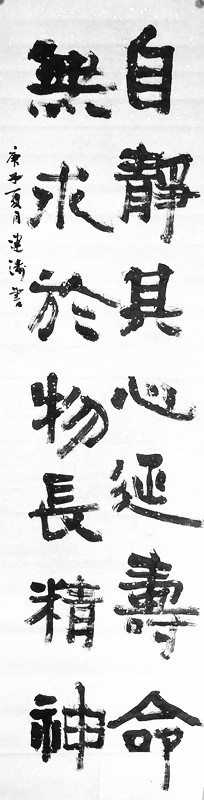 自靜其心延壽命
無求於物長精神
庚子夏月建濤書